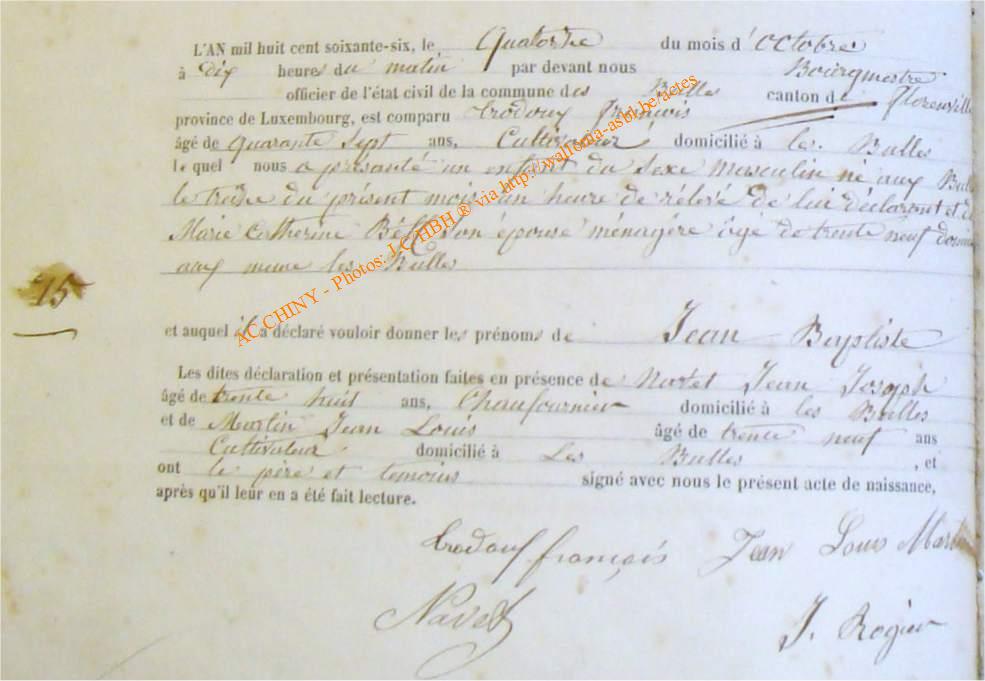 L'AN mil huit cent soixante-six, le Quatorze du mois d' octobre
à Dix heures du matin par devant nous Bourgmestre
officier de l'état civil de la commune des Bulles canton de Florenville
province de Luxembourg, est comparu François
âgé de quarante sept ans, Cultivateur domicilié à les Bulles
lequel nous a présenté un enfant du sexe masculin né aux
le treize du présent mois un heure de rélevé de lui déclarant et de
Marie Catherine son épouse ménagère âgé de trente neuf
aux meme les Bulles
15
et auquel il a déclaré vouloir donner les prénoms de Jean Baptiste
Les dites déclaration et présentation faites en présence de Jean Joseph
âgé de trente huit ans, Chaufournier domicilié à les Bulles
et de Martin Jean Louis âgé de trente neuf ans
Cultivateur domicilié à Les Bulles , et
ont le père et temoins signé avec nous le présent acte de naissance,
après qu'il leur en a été fait lecture.
françois Jean Louis
J. Rogier
AC CHINY - Photos: J.C HBH ® via http://wallonia-asbl.be/actes